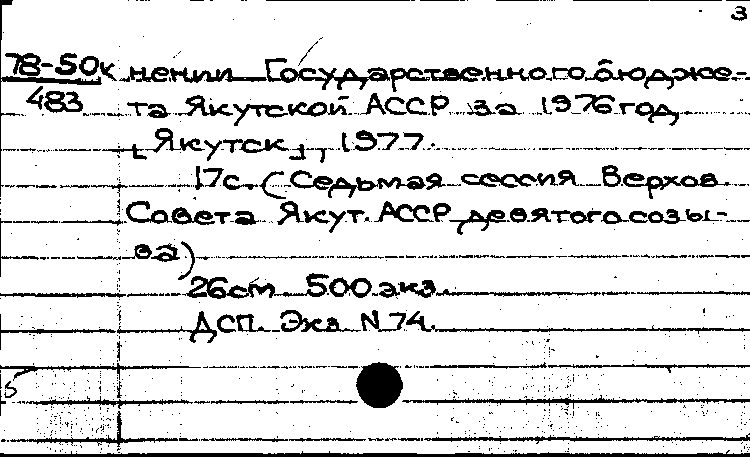 3
78-50к нении Государственного бюдже-
483 та Якутской АССР за 1976 год.
[Якутск], 1977.
17с. (Седьмая сессия Верхов.
Совета Якут. АССР девятого созы-
ва)
26см 500 экз.
ДСП. Экз N 74.
5